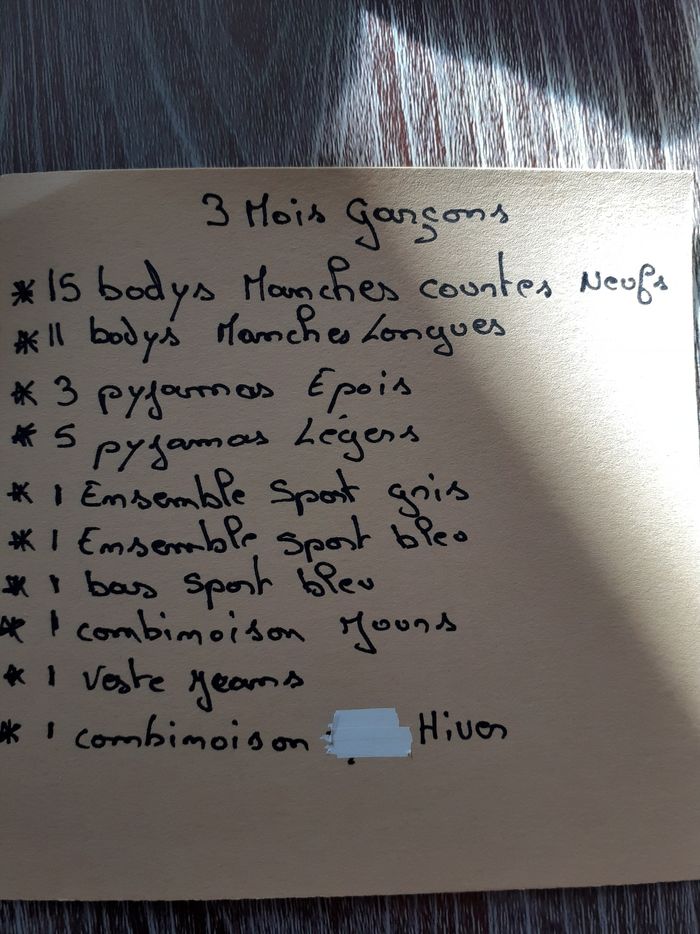 3 Mois Garçons
* 15 bodys Manches courtes Neufs
* 11 bodys Manches Longues
* 3 pyjamas Epois
* 5 pyjamas Légers
* 1 Ensemble Sport gris
* 1 Ensemble Sport bleu
* 1 bas Sport bleu
* 1 combinoison
* 1 Veste Jeans
* 1 combinoison Hiver